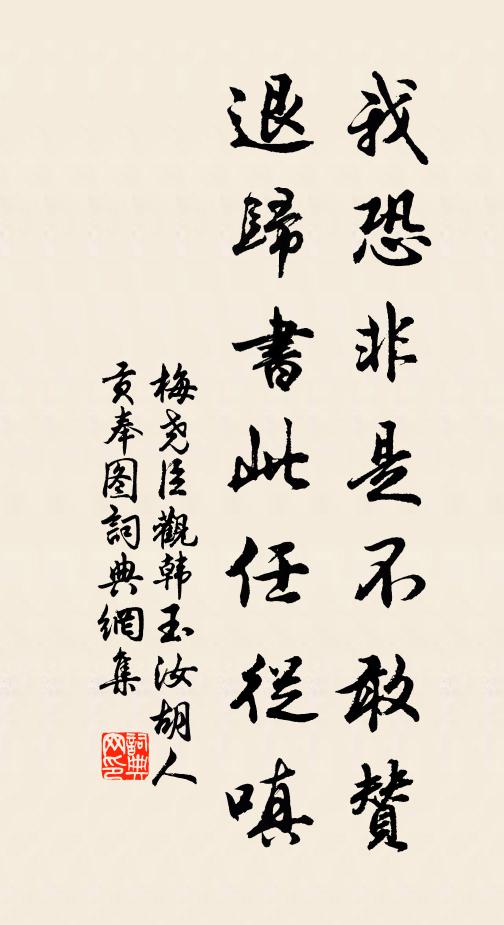 我恐非是不敢贊
退歸書此任從嗔
梅尭臣觀韩玉汝胡人
贡奉图詞典網集
詞典
网印